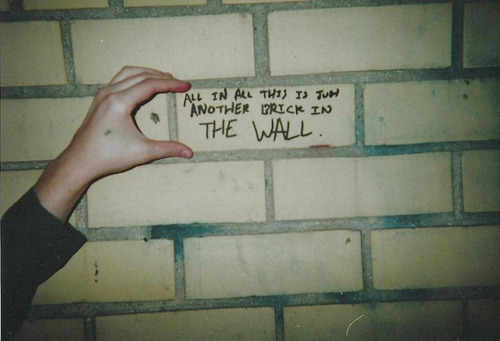 ALL IN ALL THIS IS JUST
ANOTHER BRICK IN
THE WALL.